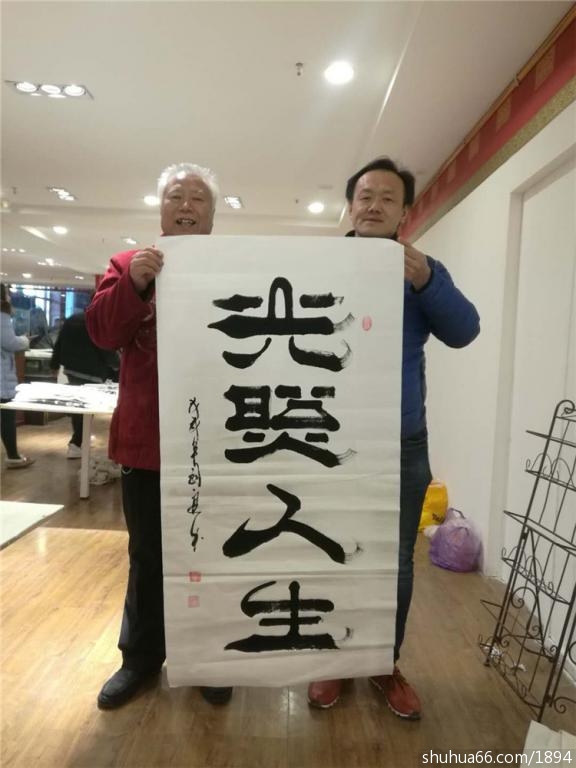 光照人生
戊戌年
shuhua66.com/1894